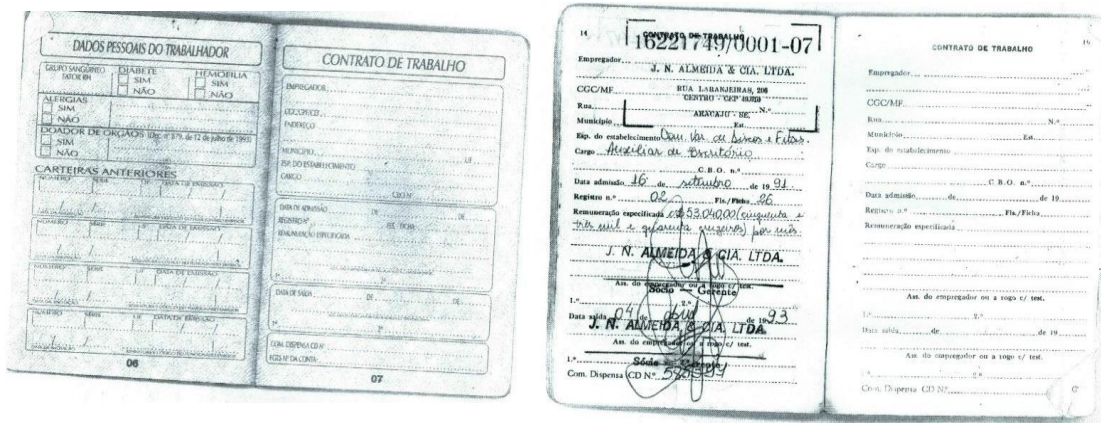 DADOS PESSOAIS DO TRABALHADOR
GRUPO SANGÜÍNEO
FATOR RH
DIABETE
SIM
NÃO
HEMOFILIA
SIM
NÃO
ALERGIAS
SIM
NÃO
DOADOR DE ORGÃOS (Dec. nº 879, de 12 de julho de 1993)
SIM
NÃO
CARTEIRAS ANTERIORES
NÚMERO SÉRIE UF DATA DE EMISSÃO
NÚMERO SÉRIE UF DATA DE EMISSÃO
NÚMERO SÉRIE UF DATA DE EMISSÃO
NÚMERO SÉRIE UF DATA DE EMISSÃO
06
CONTRATO DE TRABALHO
EMPREGADOR
CGC/CPF/CEI
ENDEREÇO
MUNICÍPIO UF
ESP. DO ESTABELECIMENTO
CARGO
CBO Nº
DATA DE ADMISSÃO DE DE
REGISTRO Nº FLS. / FICHA
REMUNERAÇÃO ESPECIFICADA
1º 2º
DATA DE SAÍDA DE DE
1º 2º
COM. DISPENSA CD Nº
FGTS Nº DA CONTA
07
14 CONTRATO DE TRABALHO
16221749/0001-07
Empregador
J. N. ALMEIDA & CIA. LTDA.
CGC/MF RUA LARANJEIRAS, 206
CENTRO - CEP
Rua N.º
ARACAJU - SE.
Município Est.
Esp. do estabelecimento Com. Var. de Discos e Fitas.
Cargo Auxiliar de Escritório
C.B.O. n.º
Data admissão 16 de setembro de 19 91
Registro n.º 02 Fls./Ficha 26
Remuneração especificada cr$ 53.040,00 (cinquenta e
três mil e quarenta cruzeiros) por mês.
J. N. ALMEIDA & CIA. LTDA.
Ass. do empregador ou a rogo c/ test.
Sócio — Gerente
1.º 2.º
Data saída 04 de abril de 19 93
J. N. ALMEIDA & CIA. LTDA.
Ass. do empregador ou a rogo c/ test.
1.º Sócio
Com. Dispensa CD N.º
CONTRATO DE TRABALHO 15
Empregador
CGC/MF
Rua N.º
Município Est.
Esp. do estabelecimento
Cargo
C.B.O. n.º
Data admissão de de 19
Registro n.º Fls./Ficha
Remuneração especificada
Ass. do empregador ou a rogo c/ test.
1.º 2.º
Data saída de de 19
Ass. do empregador ou a rogo c/ test.
1.º 2.º
Com. Dispensa CD N.º